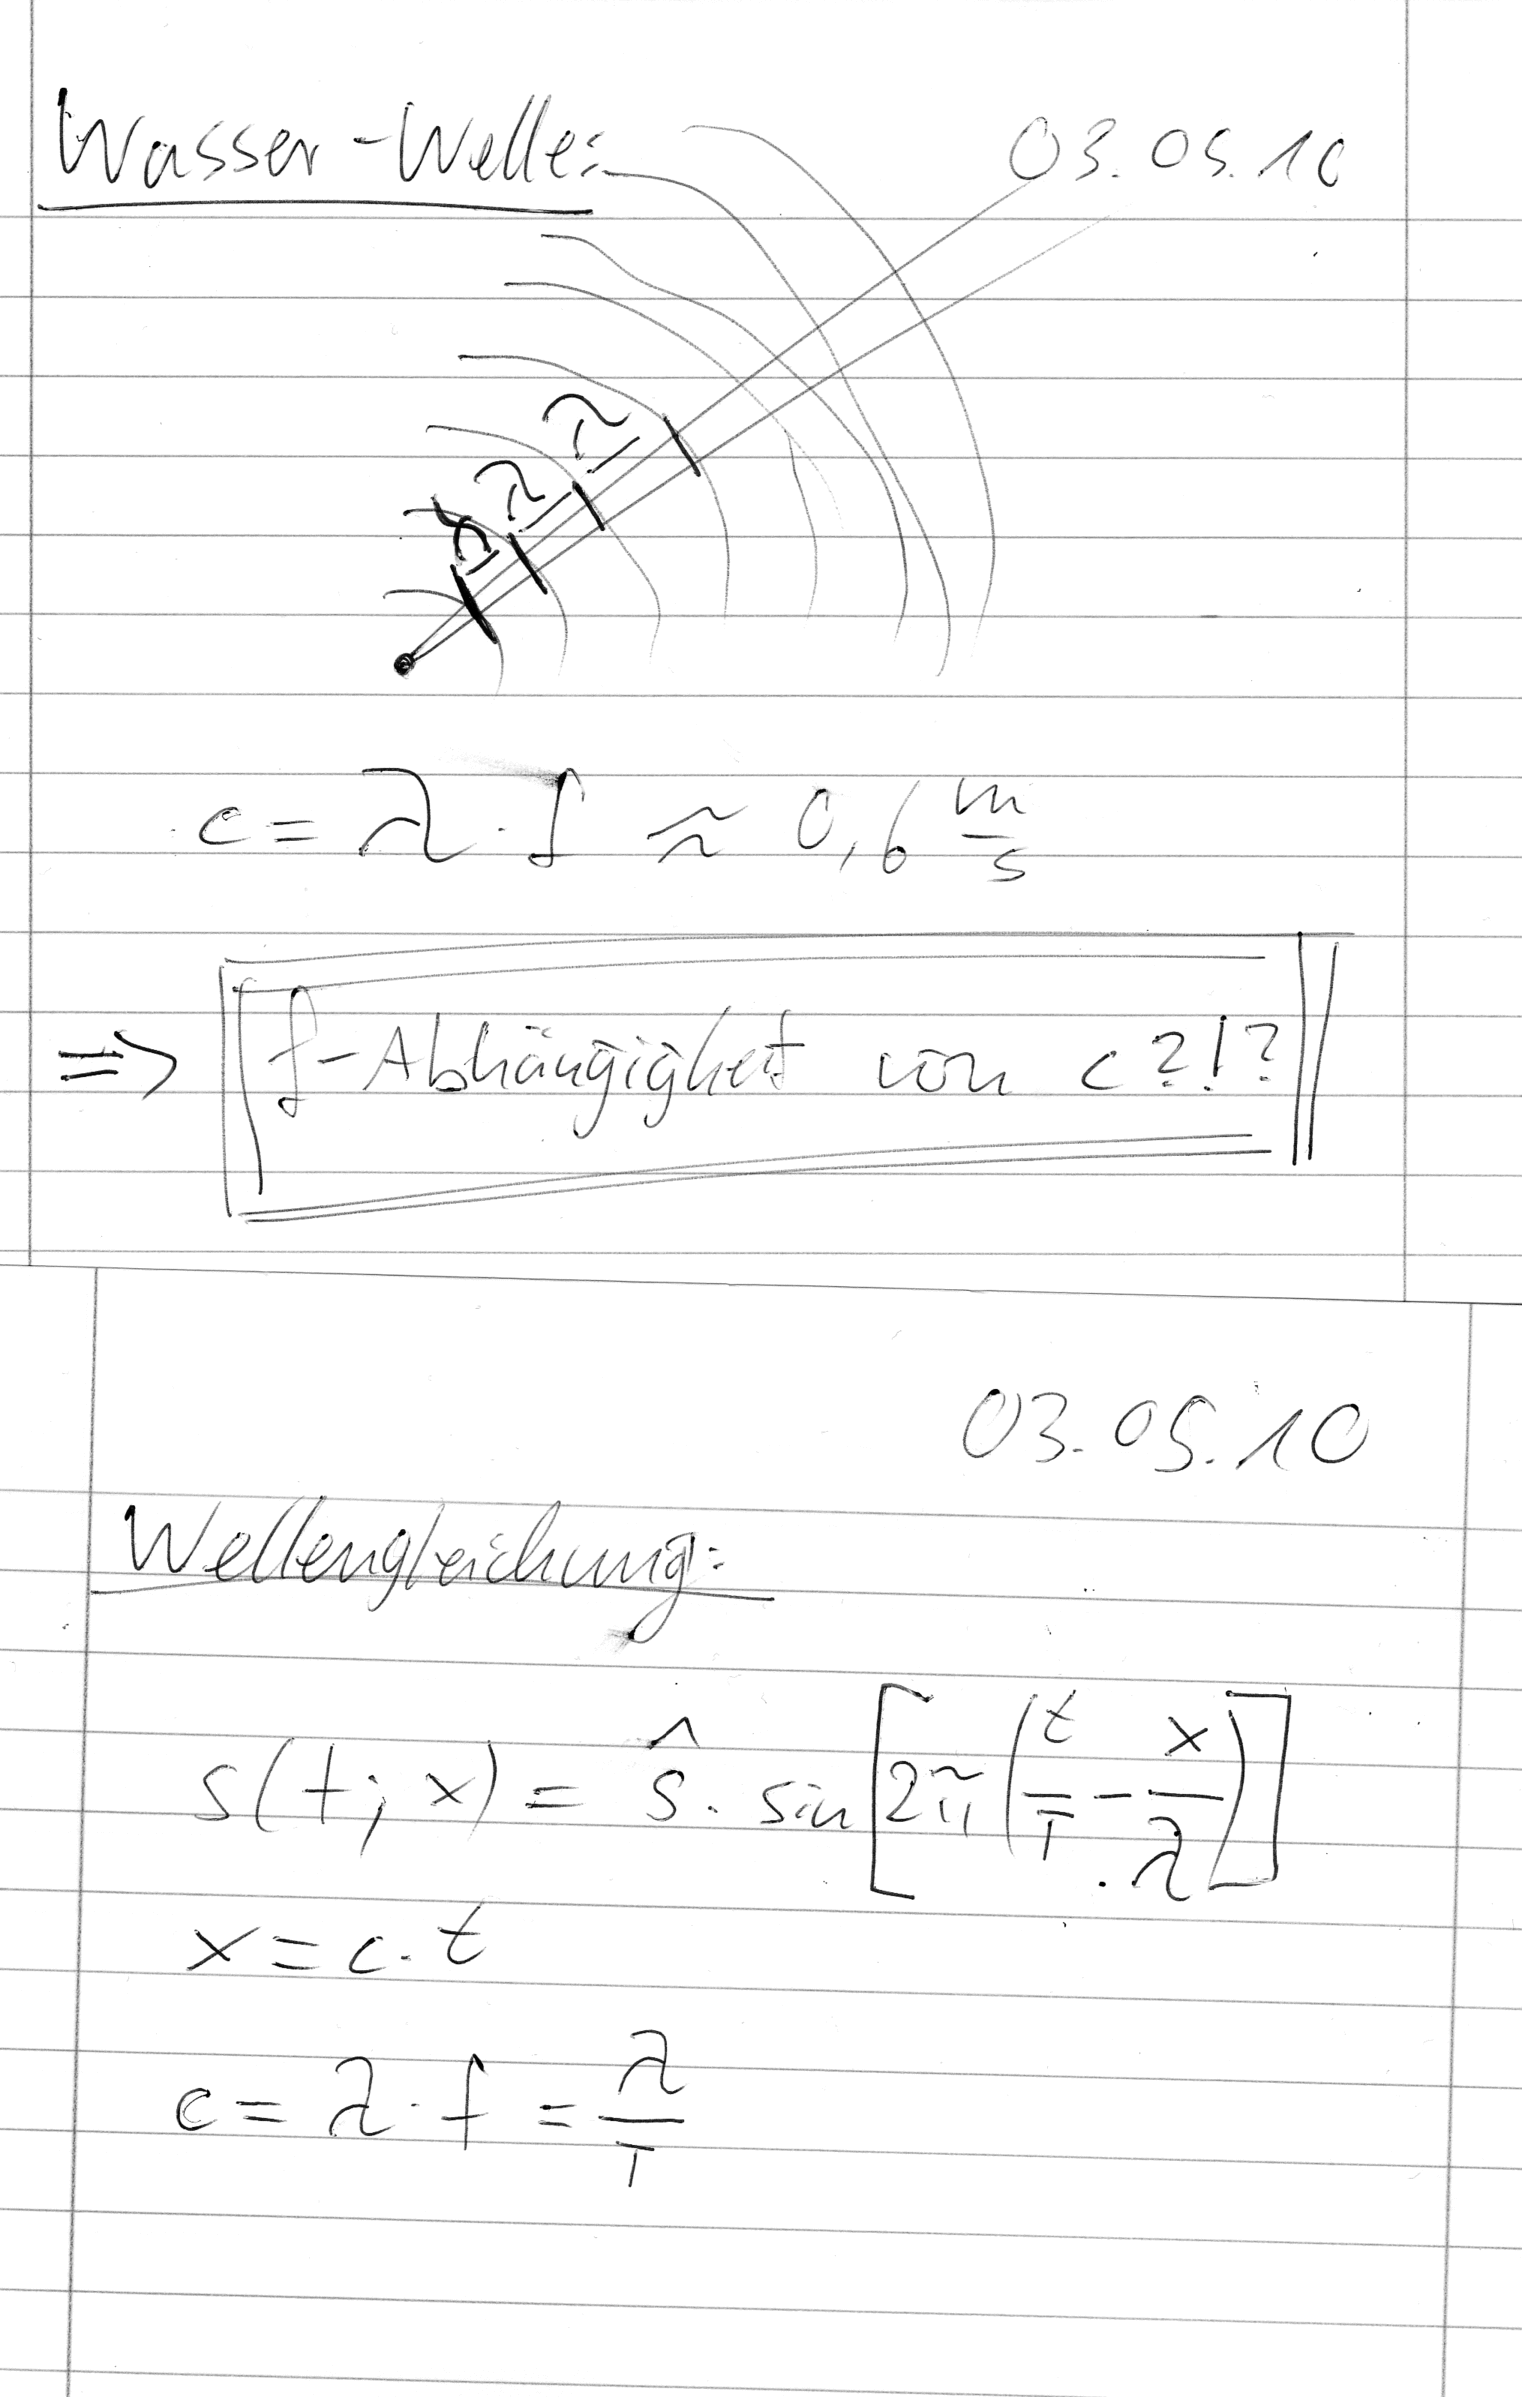 Wasser-Welle: 03.05.10
λ
λ
λ
c = λ · f ≈ 0,6 m/s
=> f-Abhängigkeit von c?!?
03.05.10
Wellengleichung:
s(t; x) = ŝ · sin[2π(t/T - x/λ)]
x = c · t
c = λ · f = λ/T